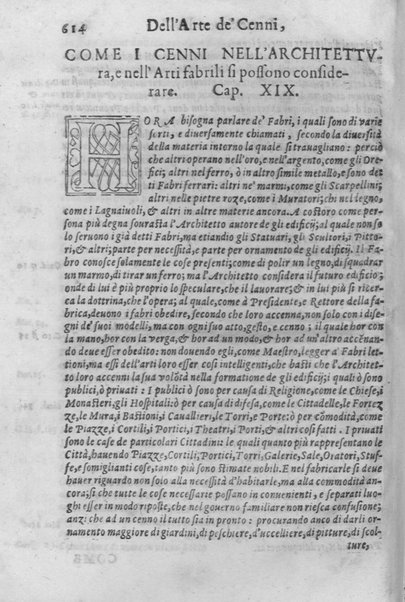 614 Dell'Arte de' Cenni,
COME I CENNI NELL'ARCHITETTV-
ra, e nell'Arti fabrili si possono conside-
rare. Cap. XIX.
HORA bisogna parlare de' Fabri, i quali sono di varie
sorti, e diversamente chiamati, secondo la diversità
della materia intorno la quale si travagliano: perciò
che altri operano nell'oro, e nell'argento, come gli Ore-
fici; altri nel ferro, ò in altro simile metallo, e sono det
ti Fabri ferrari: altri ne' marmi, come gli Scarpellini:
altri nelle pietre roze, come i Muratori; chi nel legno,
come i Legnaiuoli, & altri in altre materie ancora. A costoro come per-
sona più degna sourasta l'Architetto autore de gli edificij; al quale non so
lo seruono i già detti Fabri, ma etiandio gli Statuari, gli Scultori, Pitto-
ri, & altri; parte per necessità, e parte per ornamento de gli edificij. Il Fa-
bro conosce solamente le cose presenti; come di polir un legno, di squadrar
un marmo, di tirar un ferro; ma l'Architetto considera il futuro edificio;
onde di lui è più proprio lo speculare, che il lauorare; & in lui più si ricer-
ca la dottrina, che l'opera; al quale, come à Presidente, e Rettore della fa-
brica, deuono i fabri obedire, secondo che loro accenna, non solo con i dise-
gni de' suoi modelli, ma con ogni suo atto, gesto, e cenno; il quale hor con
la mano, hor con la verga, & hor ad un modo, & hor ad un'altro accēnan-
do deue esser obedito: non douendo egli, come Maestro, legger a' Fabri let-
tioni, ma essi dell'arti loro esser così intelligenti, che basti che l'Architet-
to loro accenni la sua volōtà nella formatione de gli edificij; quali ò sono
publici, ò priuati: I publici ò sono per causa di Religione, come le Chiese, i
Monasteri, gli Hospitali; ò per causa di difesa, come le Cittadelle, le Fortez
ze, le Mura, i Bastioni, i Cauallieri, le Torri, e Porte: ò per cōmodità, come
le Piazze, i Cortili, i Portici, i Theatri, i Porti, & altri così fatti. I priuati
sono le case de particolari Cittadini: le quali quanto più rappresentano le
Città, hauendo Piazze, Cortili, Portici, Torri, Galerie, Sale, Oratori, Stuf-
fe, e somiglianti cose, tanto più sono stimate nobili. E nel fabricarle si deue
hauer riguardo non solo alla necessità d'habitarle, ma alla commodità an-
cora; sì che tutte le cose necessarie possano in conuenienti, e separati luo-
ghi esser in modo riposte, che nel gouerno familiare non riesca confusione;
anzi che ad un cenno il tutto sia in pronto: procurando anco di darli or-
namento maggiore di giardini, di peschiere, d'uccelliere, di pitture, di scol-
ture,